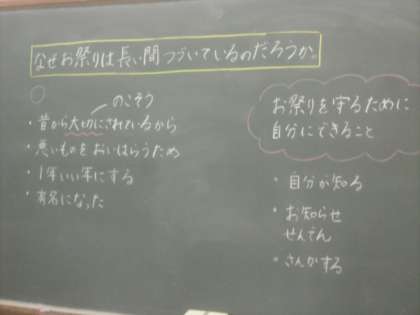 なぜお祭りは長い間つづいているのだろうか。
のこそう
・昔から大切にされているから
・悪いものをおいはらうため
・1年いい年にする
・有名になった
お祭りを守るために
自分にできること
・自分が知る
・お知らせ
せんでん
・さんかする